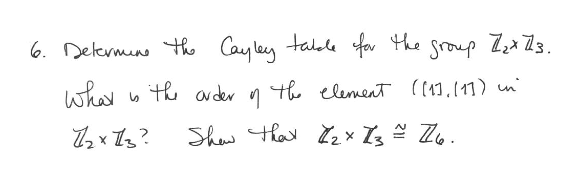 6. Determine the Cayley table for the group ℤ₂×ℤ₃.
What is the order of the element ([1],[1]) in
ℤ₂×ℤ₃? Show that ℤ₂×ℤ₃ ≅ ℤ₆.